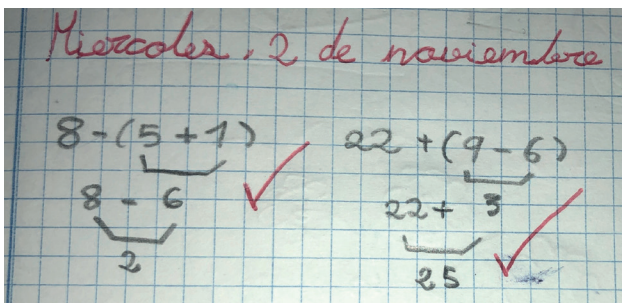 Miercoles, 2 de noviembre
8-(5+1)
8 - 6
2
22+(9-6)
22+ 3
25